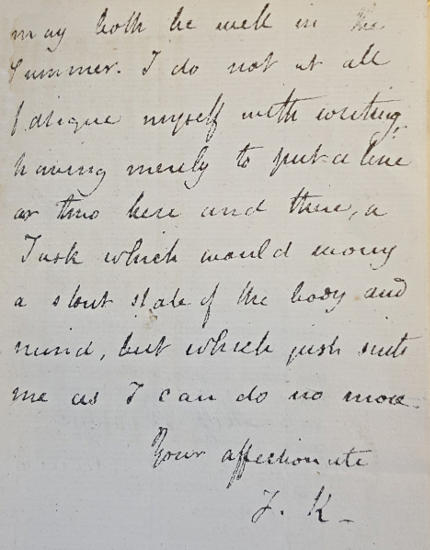 may both be well in the
Summer. I do not at all
fatigue myself with writing,
having merely to put a line
or two here and there, a
Task which would worry
a stout state of the body and
mind, but which just suits
me as I can do no more.
Your affectionate
J. K -